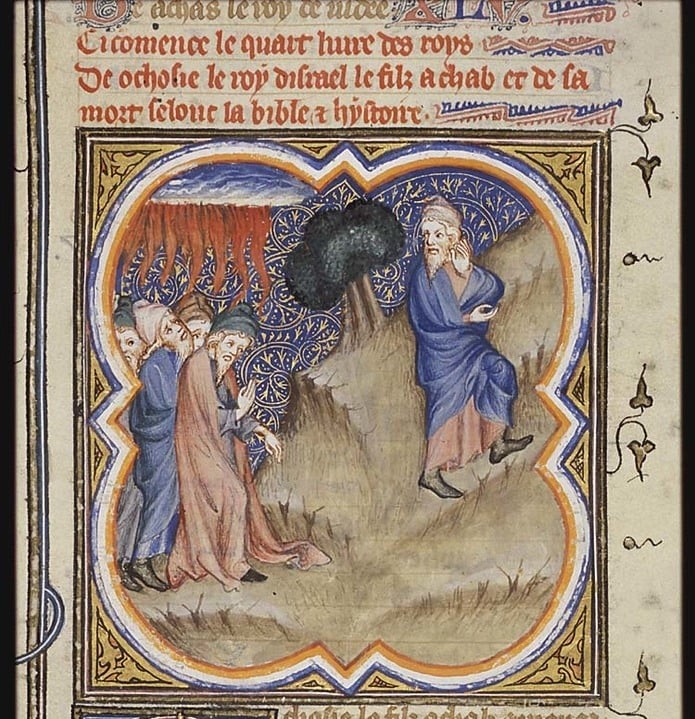 De achas le roy de iudee XLV.
Ci comence le quart liure des roys
De ochosie le roy disrael le filz achab et de sa
mort selonc la bible ⁊ hystoire.
chosie le filz achab